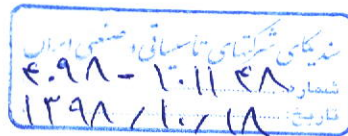 سندیکای شرکتهای تاسیساتی و صنعتی ایران
شماره: ۴۰۹۸ - ۱۰۱۱۴۸
تاریخ: ۱۳۹۸/۱۰/۱۸